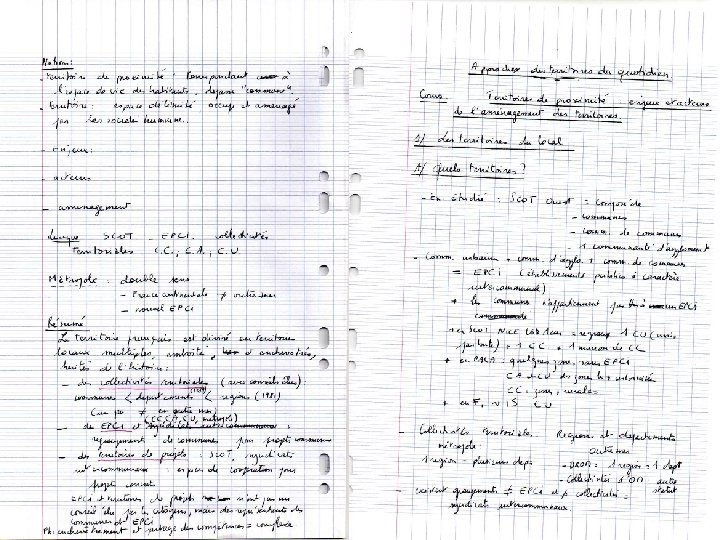 Notions :
- territoire de proximité : correspondant à
l'espace de vie des habitants, dépasse "commune".
- territoire : espace délimité occupé et aménagé
par les sociétés humaines.
- enjeux :
- acteurs
- aménagement
Lexique SCOT - EPCI. collectivités
territoriales C.C., C.A., C.U.
Métropole : double sens
- France continentale ≠ outre mer
- nouvel EPCI
Résumé
Le territoire français est divisé en territoires
locaux multiples, emboités, et enchevêtrés,
hérités de l'histoire :
- des collectivités territoriales (avec conseils élus) :
communes < départements < régions (1982)
≠ en outre mer)
- des EPCI (CC, CA, CU, métropole) :
regroupement de communes pour projets communs
- des territoires de projets : SCOT, syndicats
intercommunaux : espaces de coopération pour
projet commun
EPCI et territoires de projets n'ont pas un
conseil élu par les citoyens, mais des représentants des
communes et EPCI
enchevêtrement et partage des compétences = complexe
Approches des territoires du quotidien
Cours Territoires de proximité enjeux et acteurs
de l'aménagement des territoires.
1/ Les territoires du local
A/ Quels territoires ?
- Ex étudié : SCOT Ouest = composé de
- communes
- comm. de communes
- 1 communauté d'agglomérat
- Comm. urbaines + comm. d'agglo. + comm. de communes
= EPCI (établissements publics à caractère
intercommunal)
+ les communes n'appartiennent pas à un EPCI
+ en PACA : quelques zones sans EPCI
CA et CU : des zones les + urbanisées
CC : zones rurales
+ en F, ~ 15 CU
- Collectivités territoriales. Régions et départements
métropole : outre mer
1 région = plusieurs dépts - DROM : 1 région = 1 dépt
- Collectivités d'OM autre
statut
- existent groupements ≠ EPCI et ≠ collectivités =
syndicats intercommunaux